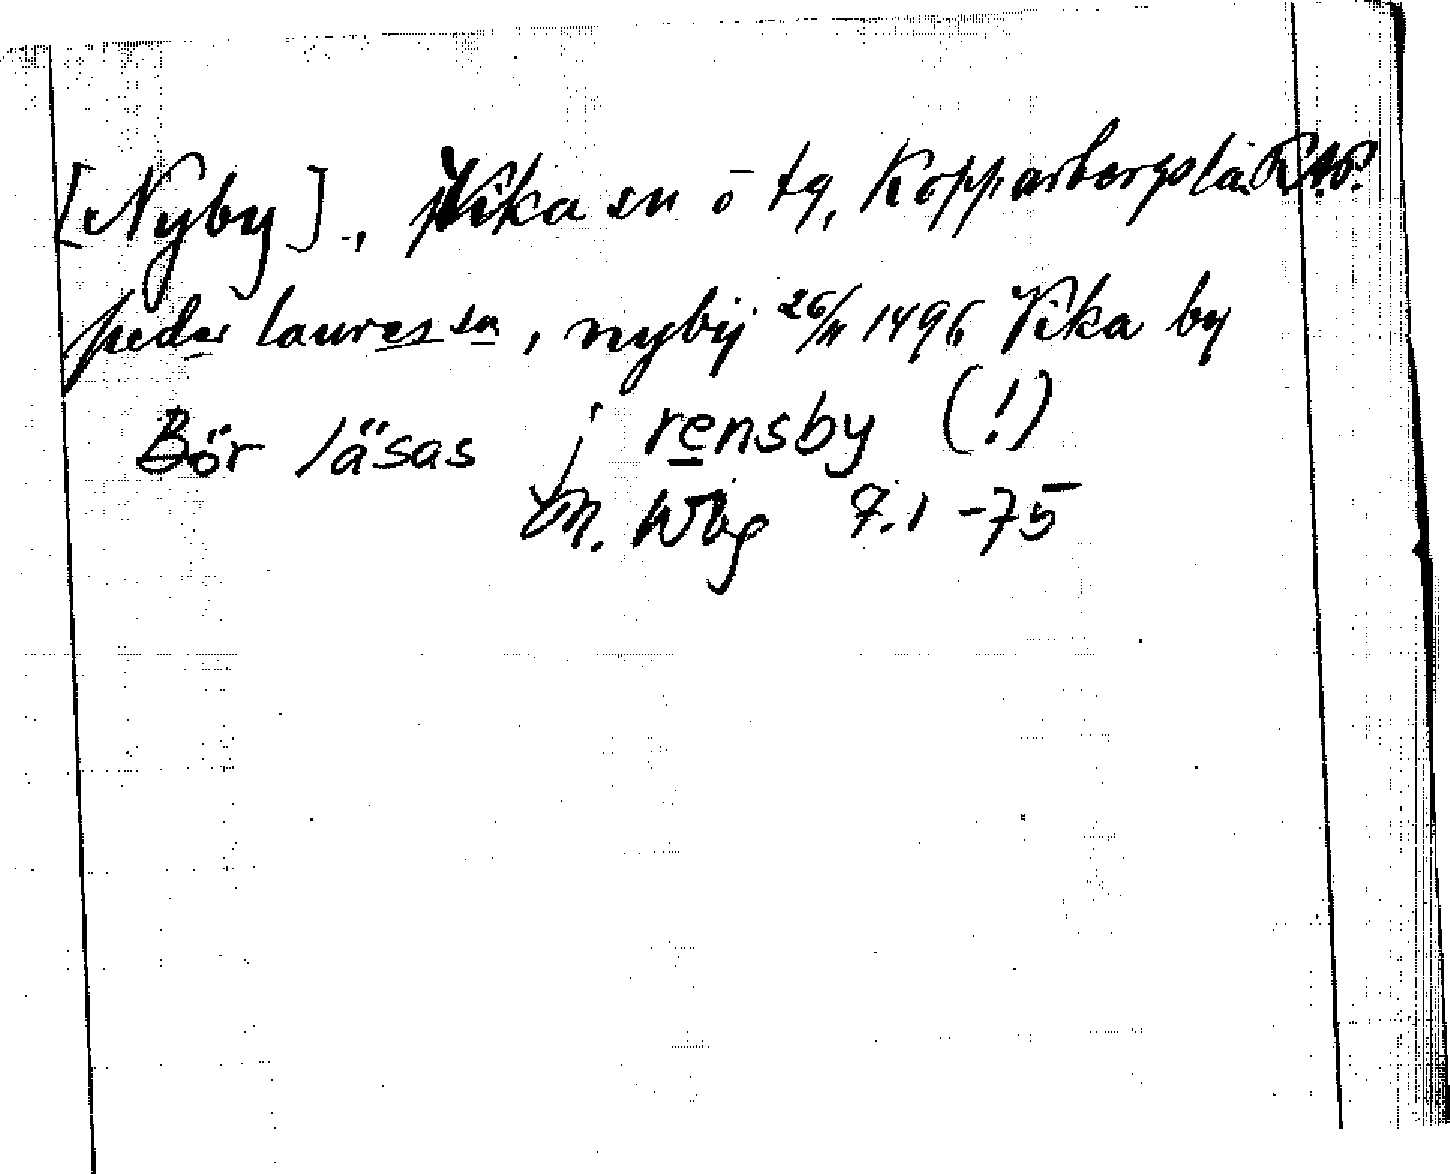 [Nyby]., Vika sn ö tg, Kopparbergs län R.A.P.
peder lauressa, nybij 26/11 1496 Vika by
Bör läsas j rensby (!)
M. Wbg 9.1 -75